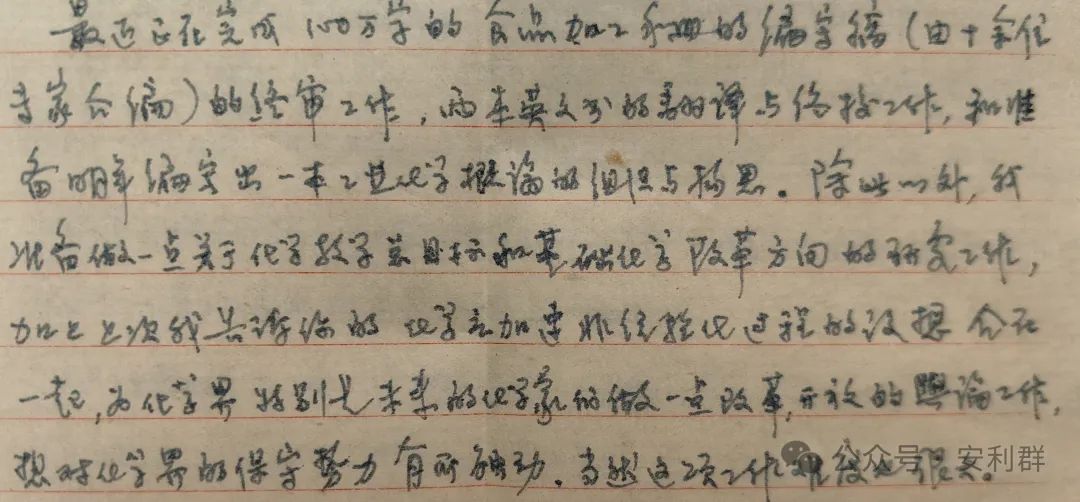 最近正在完成100万字的食品加工手册的编写稿(由十余位
专家合编)的终审工作,两本英文书的翻译与终校工作,和准
备明年编写出一本工业化学概论的组织与构思。除此以外,我
准备做一点关于化学教学总目标和基础化学改革方向的研究工作,
加上上次我告诉你的化学应加速非经验化过程的设想合在
一起,为化学界特别是未来的化学家们做一点改革,开放的舆论工作,
想对化学界的保守势力有所触动。当然这项工作难度也很大。
公众号 安利群